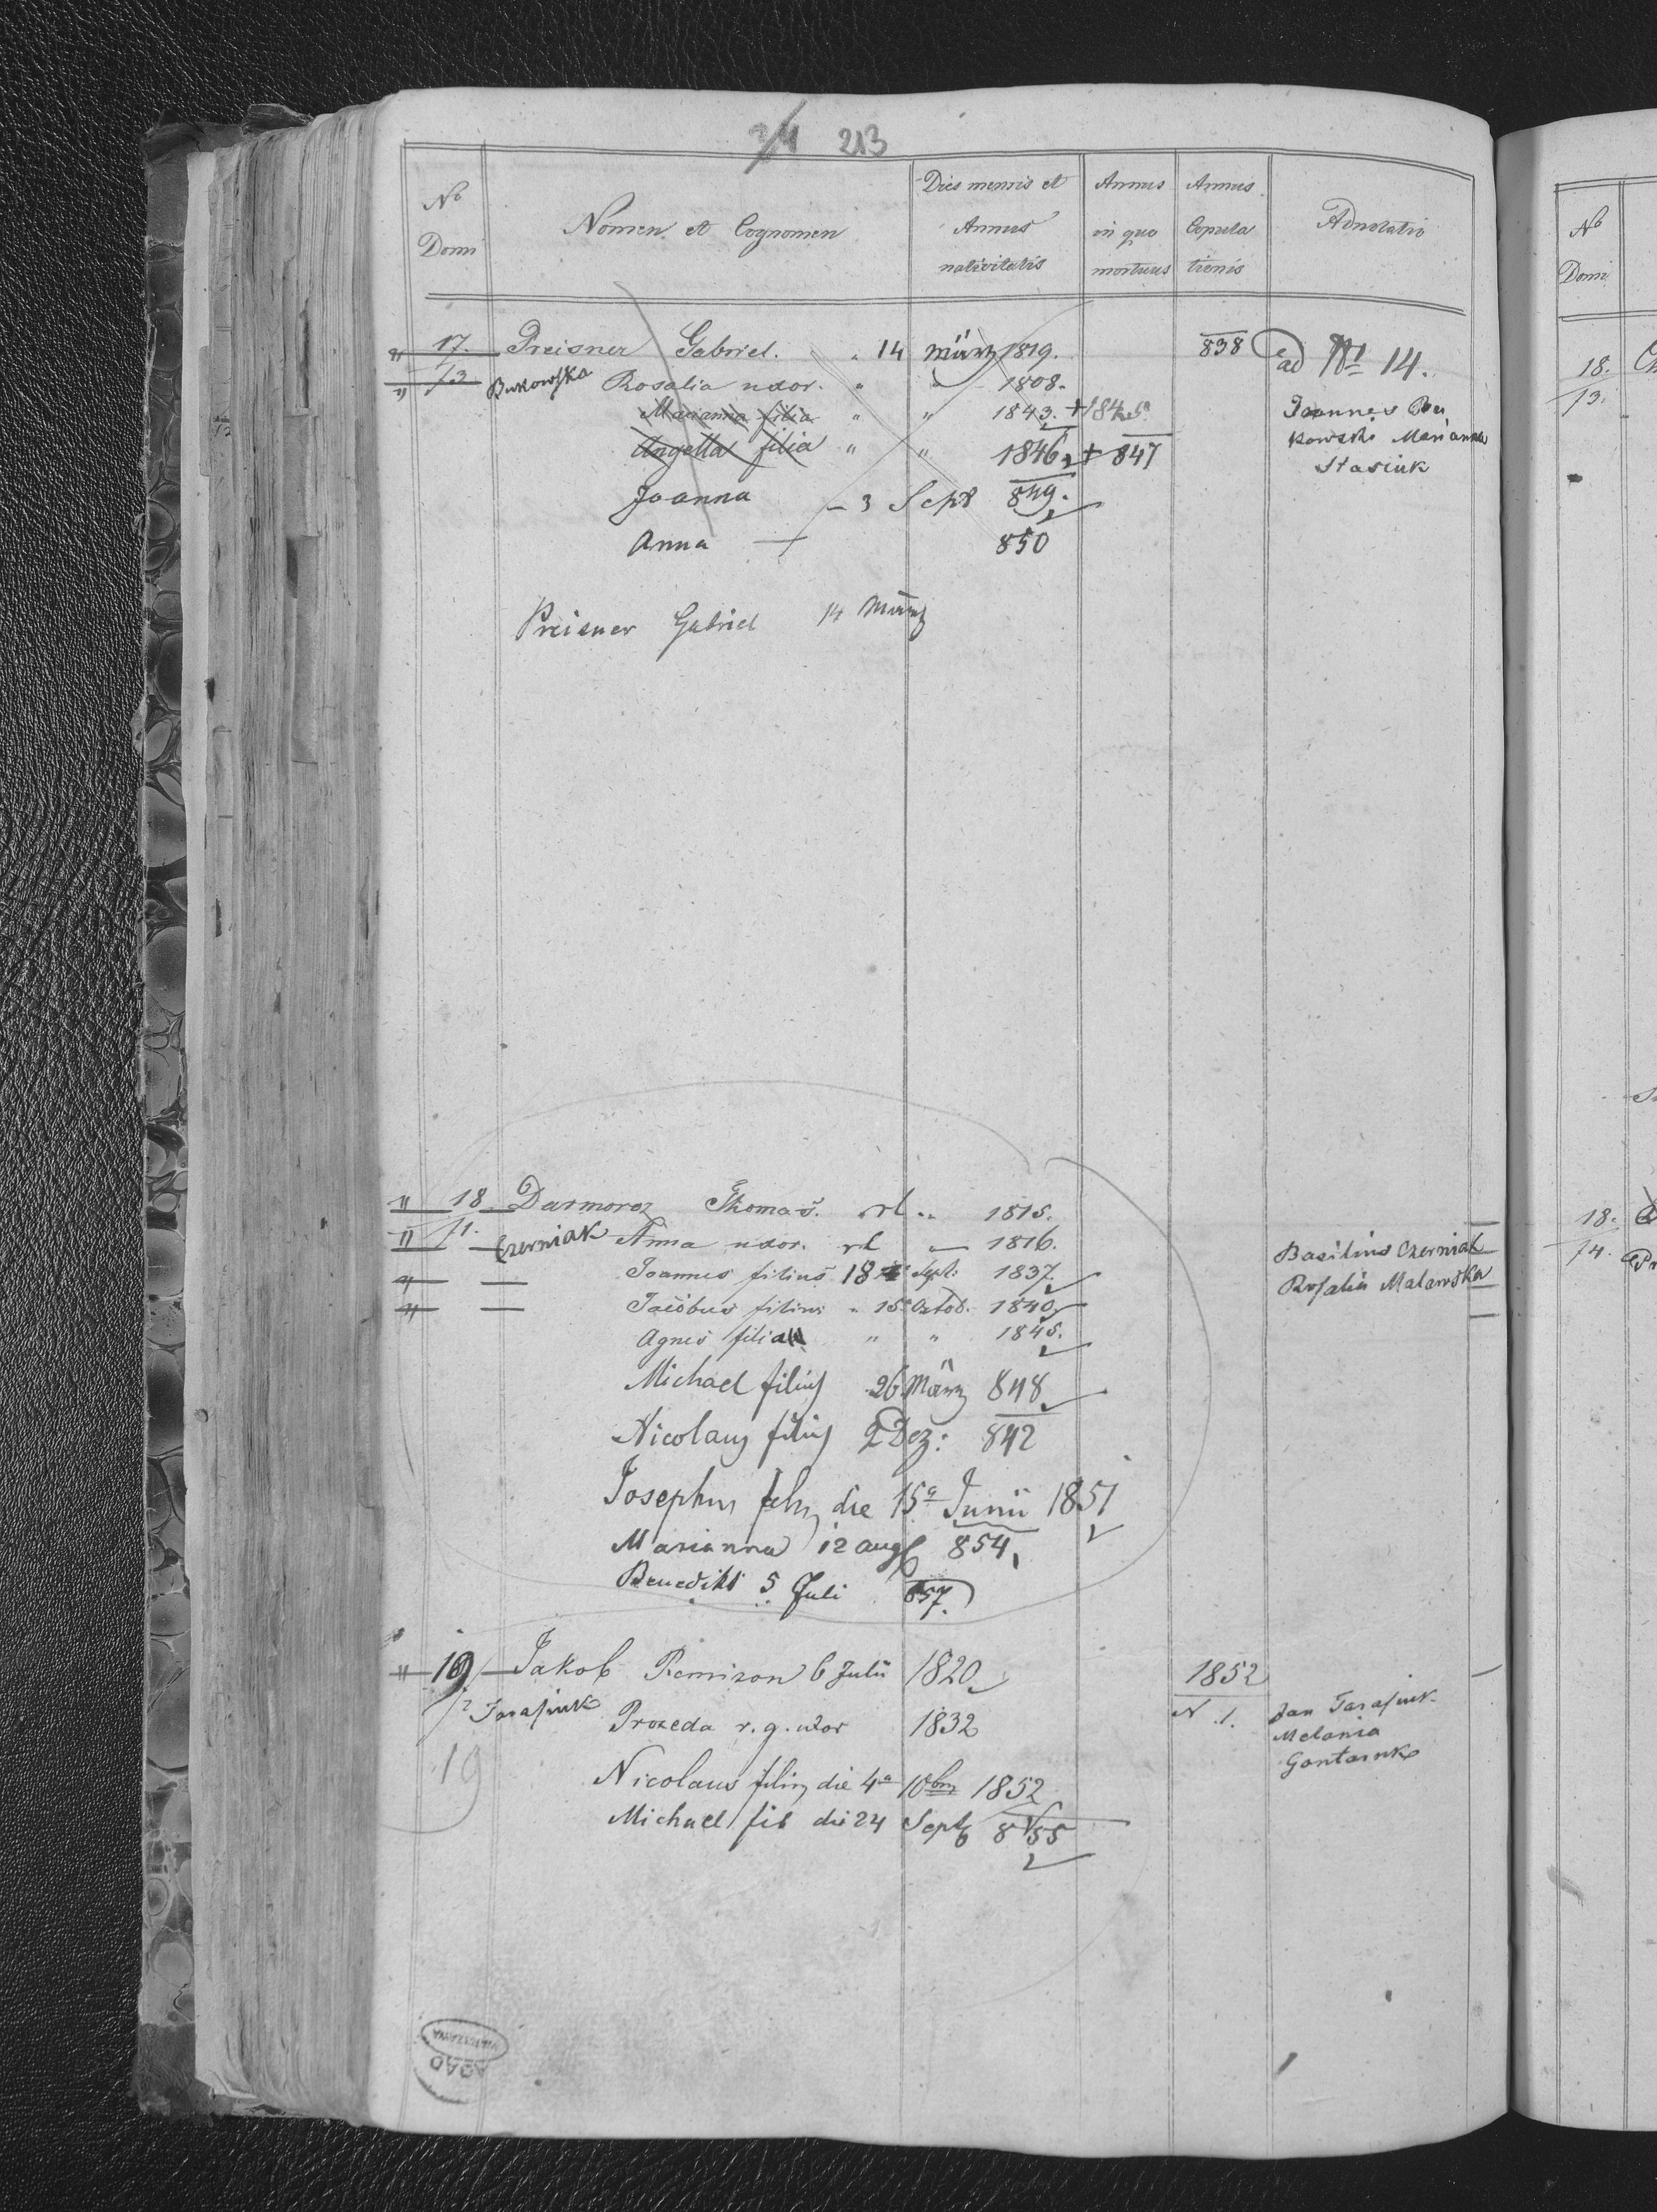 213
No Domi
Nomen et Cognomen
Dies mensis et Annus nativitatis
Annus in quo mortuus
Annus Copulationis
Adnotatio
" 17. Preisner Gabriel. " 14 März 1819. 838 ad No 14.
" 13 Bukowska Rosalia uxor. " " 1808.
Marianna filia " " 1843. + 1845 Joannes Bu
Angella filia " " 1846 + 847 kowski Marianna
Joanna – 3 Sept 849. Stasiuk
Anna 850
Preisner Gabriel 14 März
" 18 Darmoroz Thomas. rl " 1815.
" 11. Czerniak Anna uxor. rl " 1816. Basilius Czerniak
" Joannes filius 18 Sept: 1837 Rosalia Malawska
" Jacobus filius " 15 Octob. 1840
Agnes filia " " 1845.
Michael filius 26 März 848
Nicolaus filius 2 Dez: 842
Josephus filius die 15a Junii 1851
Marianna 12 aug 854
Benedikt 5 Juli 857.
" 19 Jakob Remizon 6 Julii 1820 1852
12 Tarasiuk Proxeda r. g. uxor 1832 N. 1. Jan Tarasiuk
19 Melania
Gontaruk
Nicolaus filius die 4a 10bris 1852
Michael fil die 24 Sept 855
No Domi
18.
13.
18.
14.
AGAD
WARSZAWA